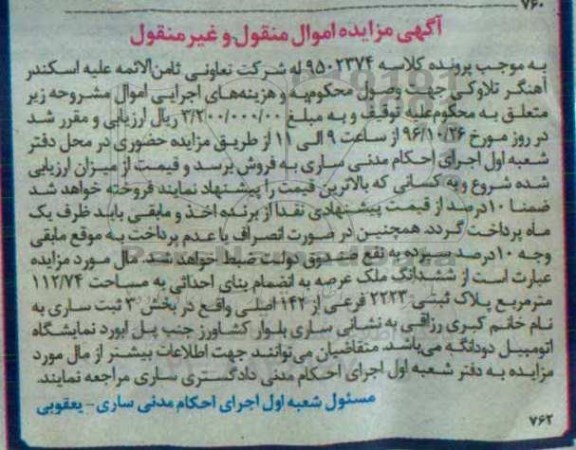 ۷۶۰
آگهی مزایده اموال منقول و غیر منقول
به موجب پرونده کلاسه ۹۵۰۲۳۷۴ له شرکت تعاونی ثامن‌الائمه علیه اسکندر
آهنگر تلاوکی جهت وصول محکوم‌به و هزینه‌های اجرایی اموال مشروحه زیر
متعلق به محکوم‌علیه توقیف و به مبلغ ۳/۲۰۰/۰۰۰/۰۰ ریال ارزیابی و مقرر شد
در روز مورخ ۹۶/۱۰/۲۶ از ساعت ۹ الی ۱۱ از طریق مزایده حضوری در محل دفتر
شعبه اول اجرای احکام مدنی ساری به فروش برسد و قیمت از میزان ارزیابی
شده شروع و به کسانی که بالاترین قیمت را پیشنهاد نمایند فروخته خواهد شد
ضمنا ۱۰درصد از قیمت پیشنهادی نقدا از برنده اخذ و مابقی باید ظرف یک
ماه پرداخت گردد. همچنین در صورت انصراف یا عدم پرداخت به موقع مابقی
وجه ۱۰درصد سپرده به نفع صندوق دولت ضبط خواهد شد. مال مورد مزایده
عبارت است از ششدانگ ملک عرصه به انضمام بنای احداثی به مساحت ۱۱۲/۷۴
مترمربع پلاک ثبتی ۲۲۲۳ فرعی از ۱۴۲ اصلی واقع در بخش ۳ ثبت ساری به
نام خانم کبری رزاقی به نشانی ساری بلوار کشاورز جنب پل ابورد نمایشگاه
اتومبیل دودانگه می‌باشد. متقاضیان می‌توانند جهت اطلاعات بیشتر از مال مورد
مزایده به دفتر شعبه اول اجرای احکام مدنی دادگستری ساری مراجعه نمایند.
مسئول شعبه اول اجرای احکام مدنی ساری- یعقوبی
۷۶۲